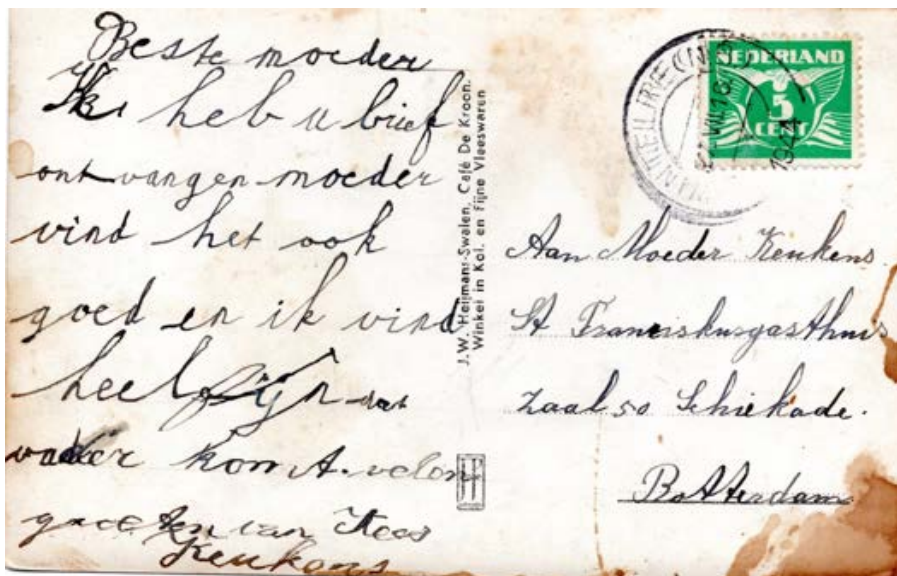 Beste moeder
Ik heb u brief
ontvangen moeder
vind het ook
goed en ik vind
heel fijn dat
vader komt. velen
groeten van Kees
Keukens
J.W. Heijmans-Swalen, Café De Kroon.
Winkel in Kol. en Fijne Vleeswaren
JT
NEDERLAND
5
CENT
1944
Aan Moeder Keukens.
St Franciskusgasthuis
Zaal 50 Schiekade.
Rotterdam